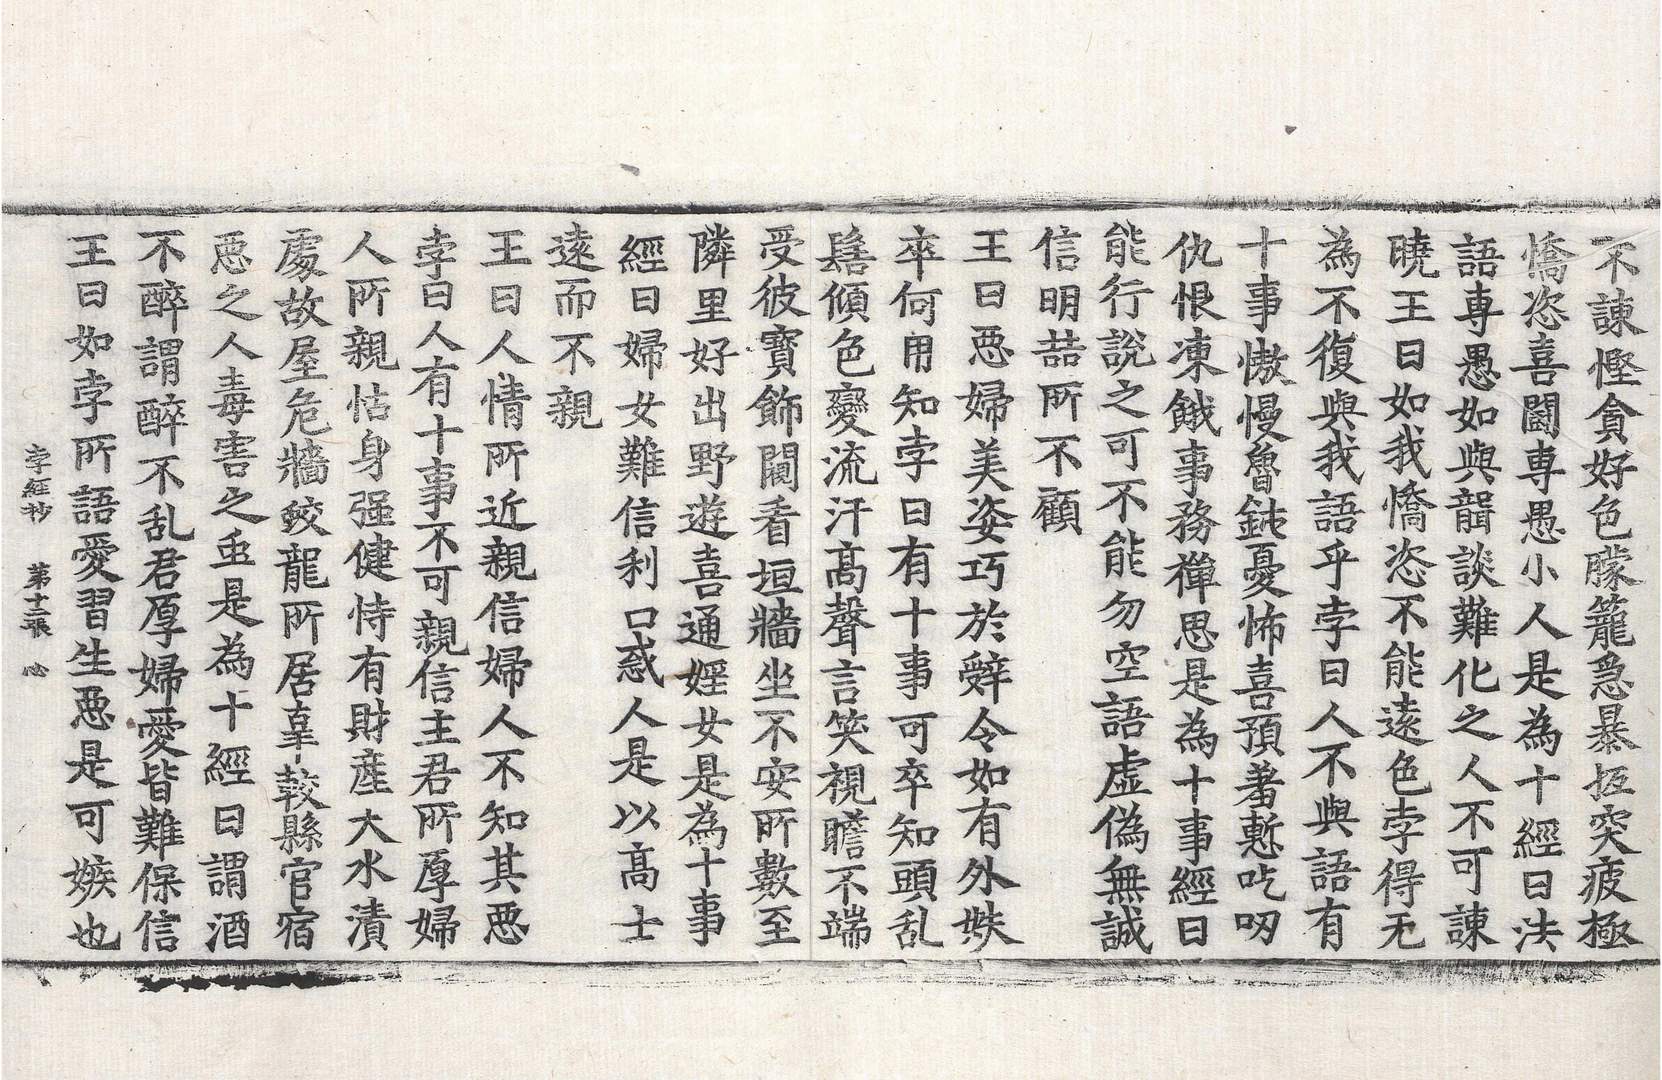 不諫慳貪好色朦籠急暴抵突疲極
憍恣喜鬪專愚小人是為十經曰法
語專愚如與聾談難化之人不可諫
曉王曰如我憍恣不能遠色孛得无
為不復與我語乎孛曰人不與語有
十事慠慢魯鈍憂怖喜預羞慙吃吶
仇恨凍餓事務禪思是為十事經曰
能行說之可不能勿空語虛偽無誠
信明喆所不顧
王曰惡婦美姿巧於辭令如有外婬
卒何用知孛曰有十事可卒知頭乱
髻傾色變流汗髙聲言笑視瞻不端
受彼寶飾闚看垣牆坐不安所數至
隣里好出野遊喜通婬女是為十事
經曰婦女難信利口惑人是以髙士
遠而不親
王曰人情所近親信婦人不知其惡
孛曰人有十事不可親信主君所厚婦
人所親怙身强健恃有財產大水漬
處故屋危牆蛟龍所居辜較縣官宿
惡之人毒害之虫是為十經曰謂酒
不醉謂醉不乱君厚婦愛皆難保信
王曰如孛所語愛習生惡是可嫉也
孛經抄 第十二張 念